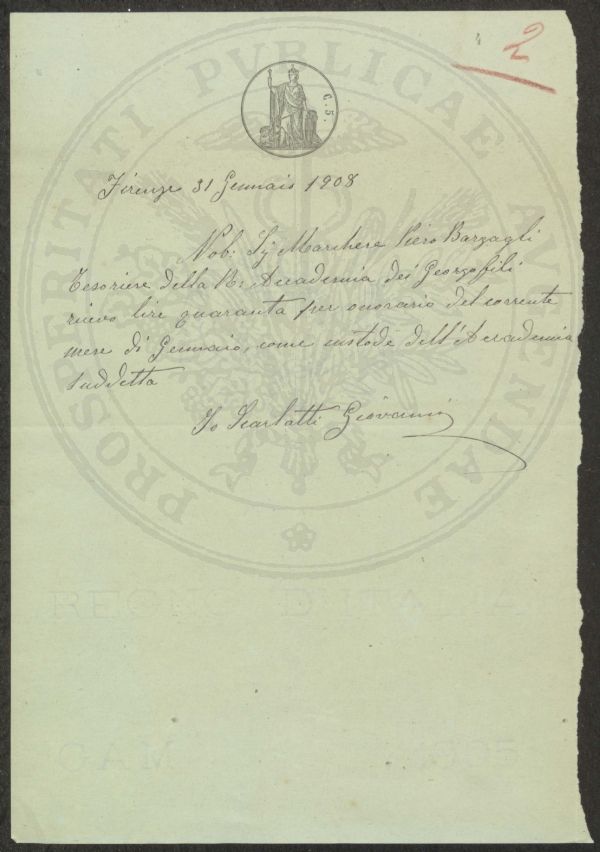 2
C. 5.
PROSPERITATI PVBLICAE AVGENDAE
Firenze 31 Gennaio 1908
Nob: Sig Marchese Piero Bargagli
Tesoriere della R: Accademia dei Georgofili
ricevo lire quaranta per onorario del corrente
mese di Gennaio, come custode dell'Accademia
suddetta
Io Scarlatti Giovanni
REGNO D'ITALIA